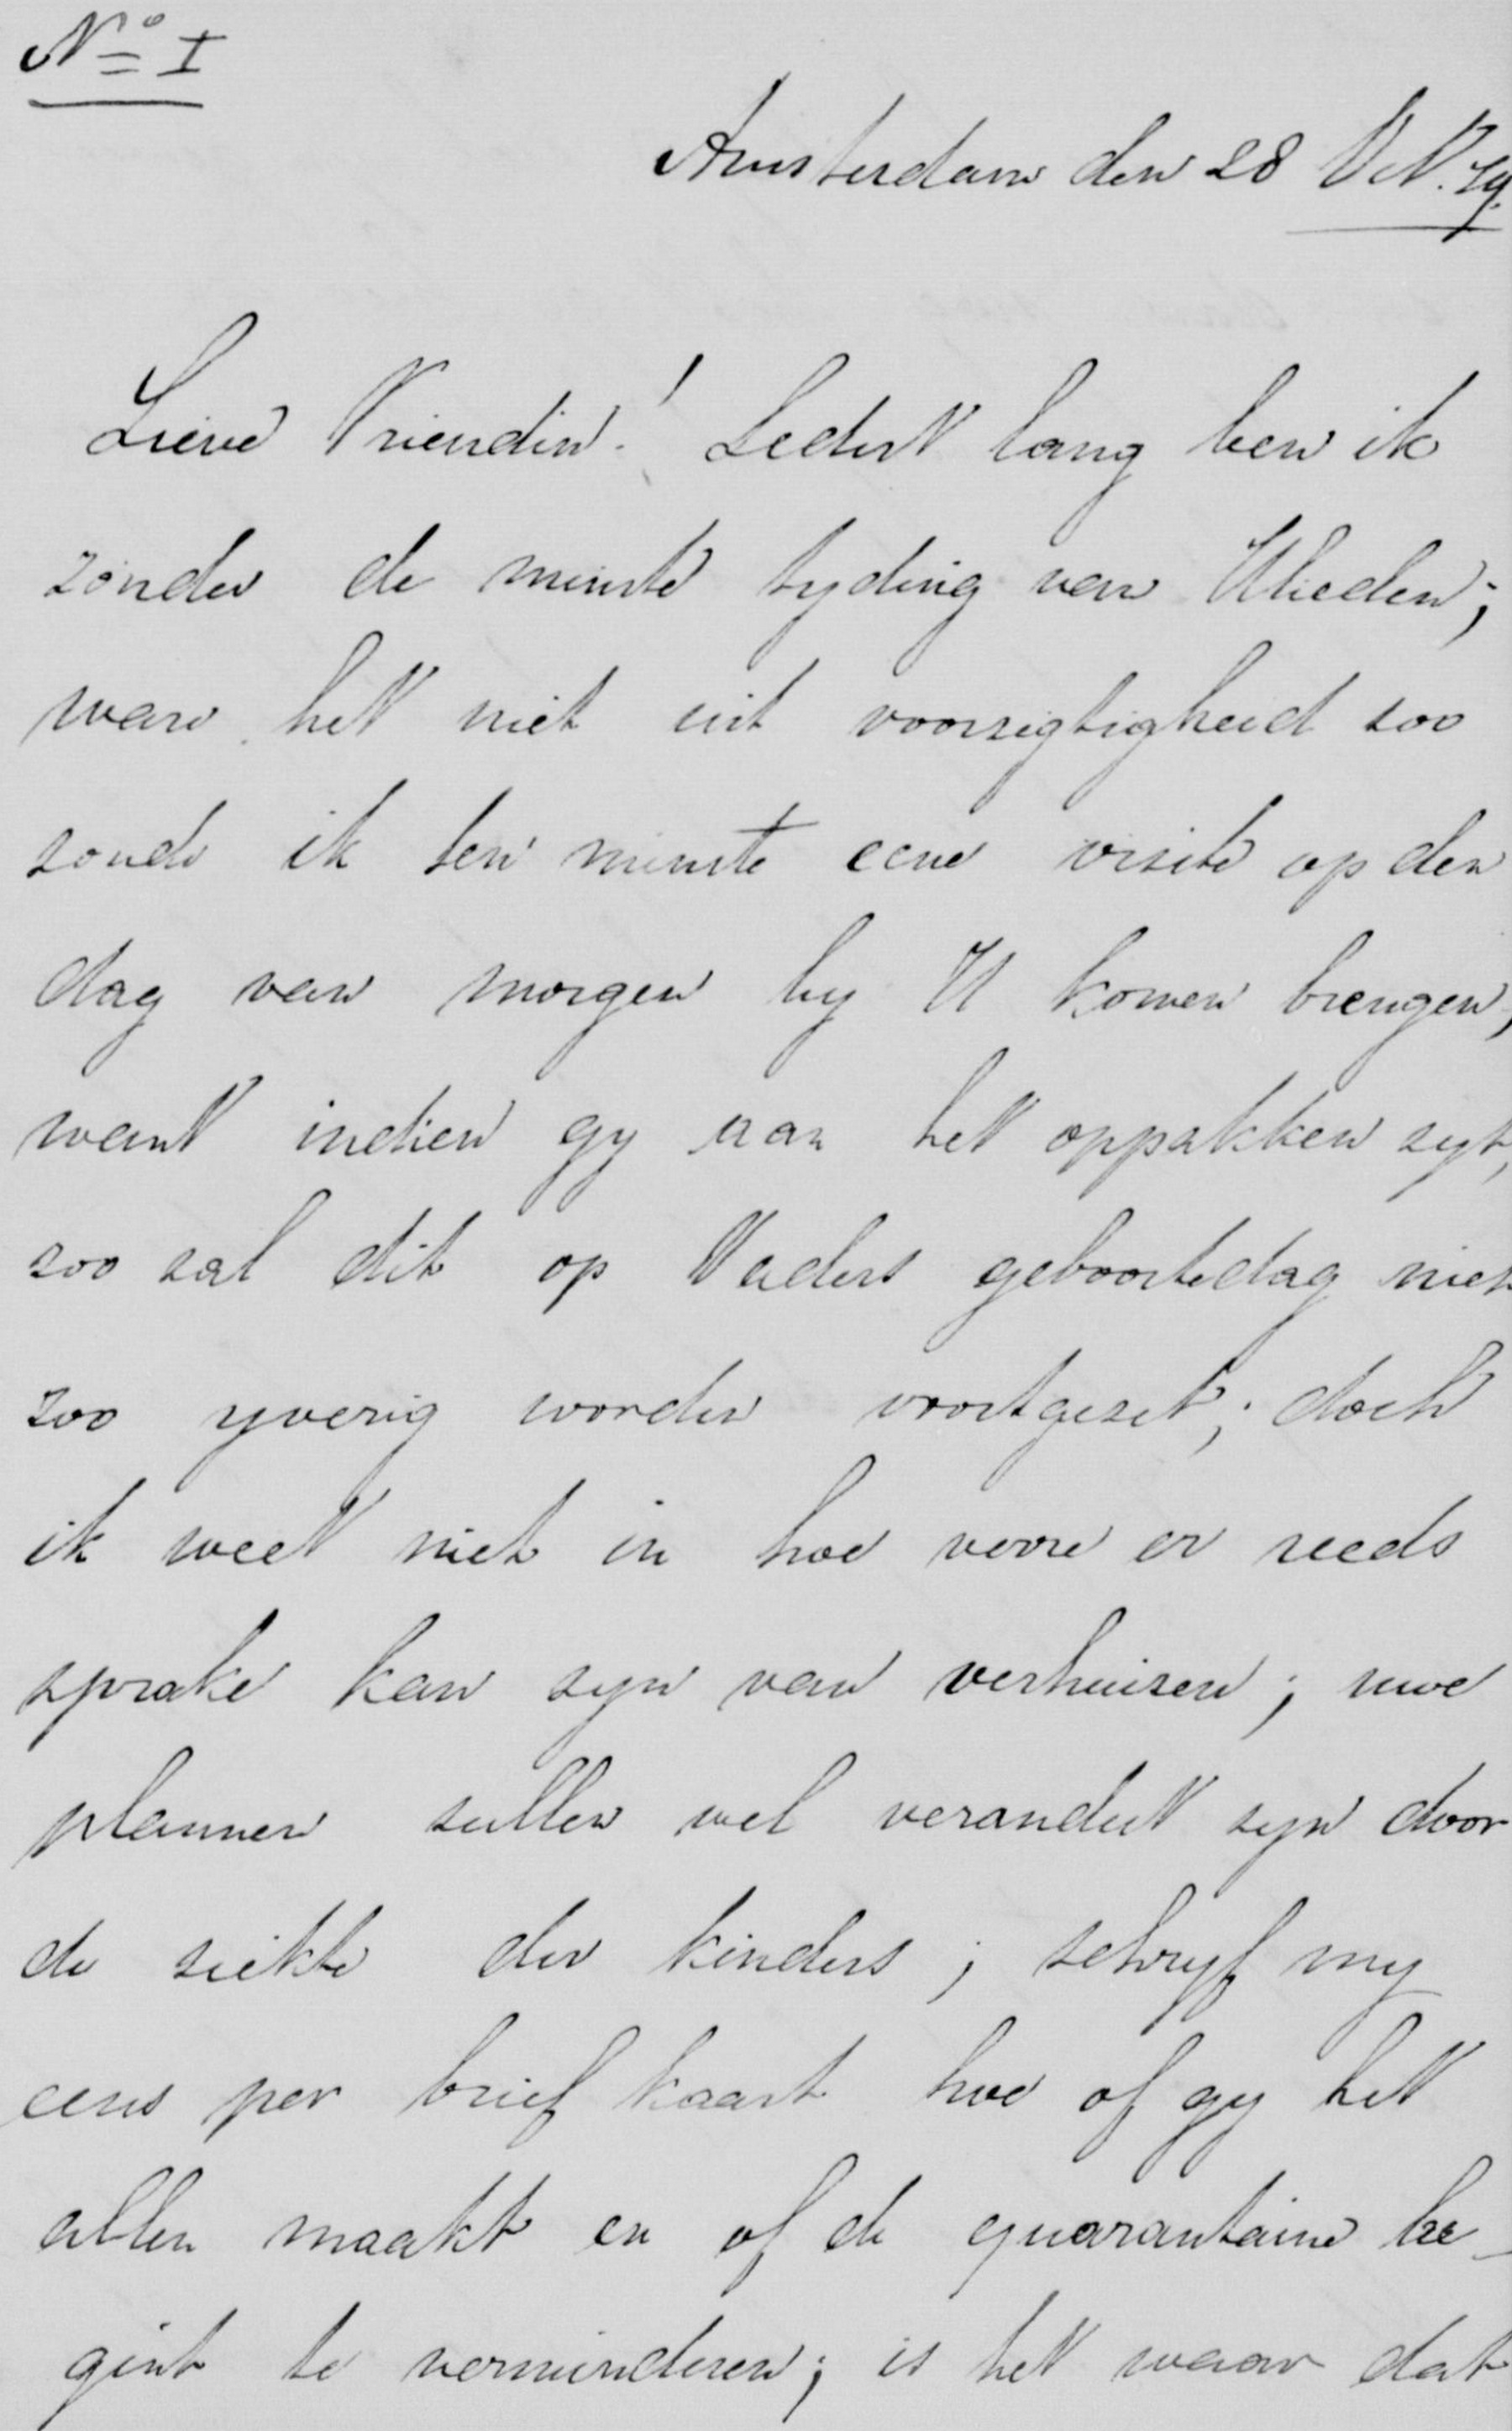 No I
Amsterdam den 28
Lieve Vriendin! Sedert lang ben ik
zonder de minste tyding van Ulieden;
ware het niet uit voorzigtigheid zoo
zoude ik ten minste eene visite op den
dag van morgen by U komen brengen,
want indien gy aan het oppakken zyt,
zoo zal dit op Vaders geboortedag niet
zoo yverig worden voortgezet; doch
ik weet niet in hoe verre er reeds
sprake kan zyn van verhuizen; uwe
plannen zullen wel verandert zyn door
de ziekte der kinders; schryf my
eens per brief kaart hoe of gy het
allen maakt en of de quarantaine be-
gint te verminderen; is het waar dat